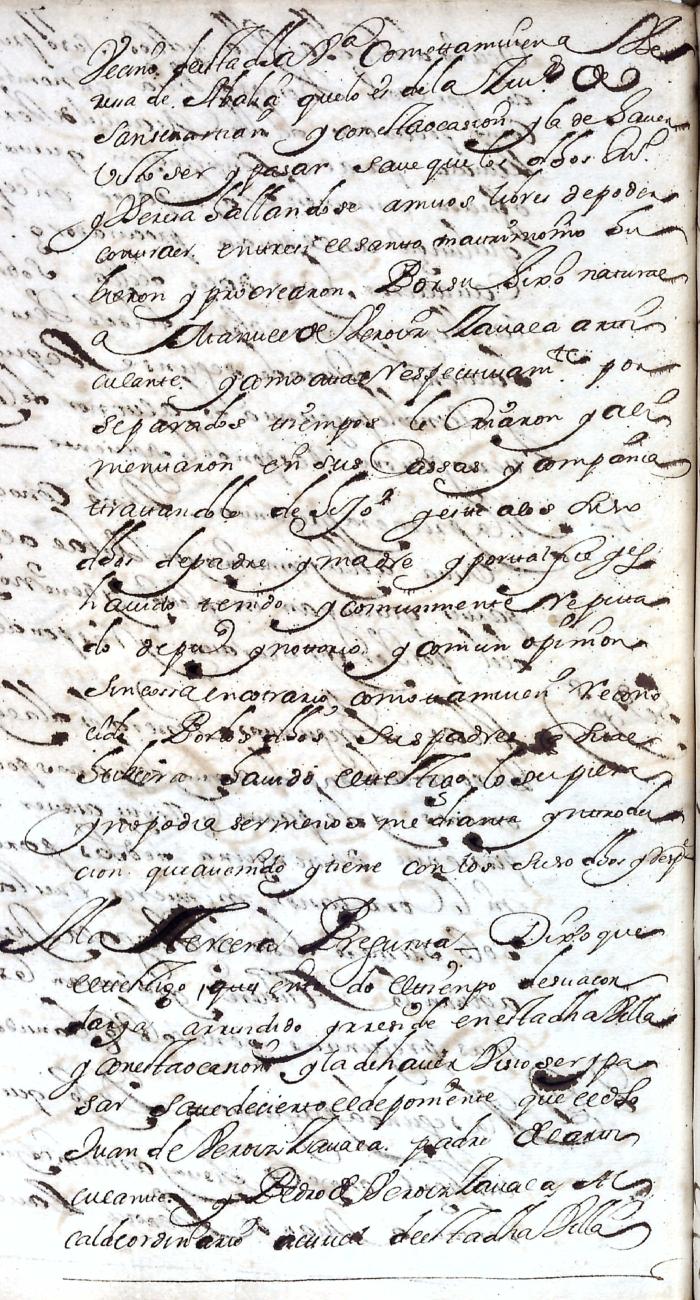 Vecino desta dha Vª Como ttamvien a
rena de que lo es de la Ciud de
San sevastian y con esta ocasion y la de haver
visto ser y pasar save que los dhos
y Teresa hallandose amvos libres de poder
contraer entre si el santo matrimonio hu
bieron y procrearon Por su hixo natural
a Manuel de articu
culante y como a tal respectivamte por
separados tiempos le Criaron y ali
mentaron en sus Cassas y compania
tratandole de hijo y este a los suso
dhos de padre y madre y por tal fue y es
havido tenido y comunmente reputta
do de puco y nottorio y comun opinion
sin cossa en cotrario como ttamvien recono
cido Por los dhos sus padres y si tal
hubiera havido el testigo lo supiera
y no podia ser menos mediante ynttrodu
cion que a tenido y tiene con los suso dhos y
A la Tercera Pregunta Dixo que
el testigo en todo el tiempo de su acor
danza a rresidido y rreside en esta dha Villa
y con esta ocasion y la de haver Visto ser y pa
sar save de cierto el deponente que el dho
Juan de padre del arti
culante y Pedro de Al
calde ordinario actual de esta dha Villa